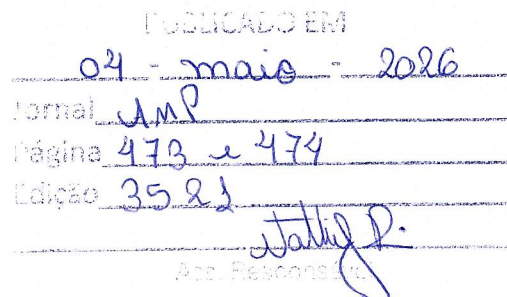 PUBLICADO EM
04 - maio - 2026
Jornal AMP
Página 473 e 474
Edição 3521
Ass. Responsável